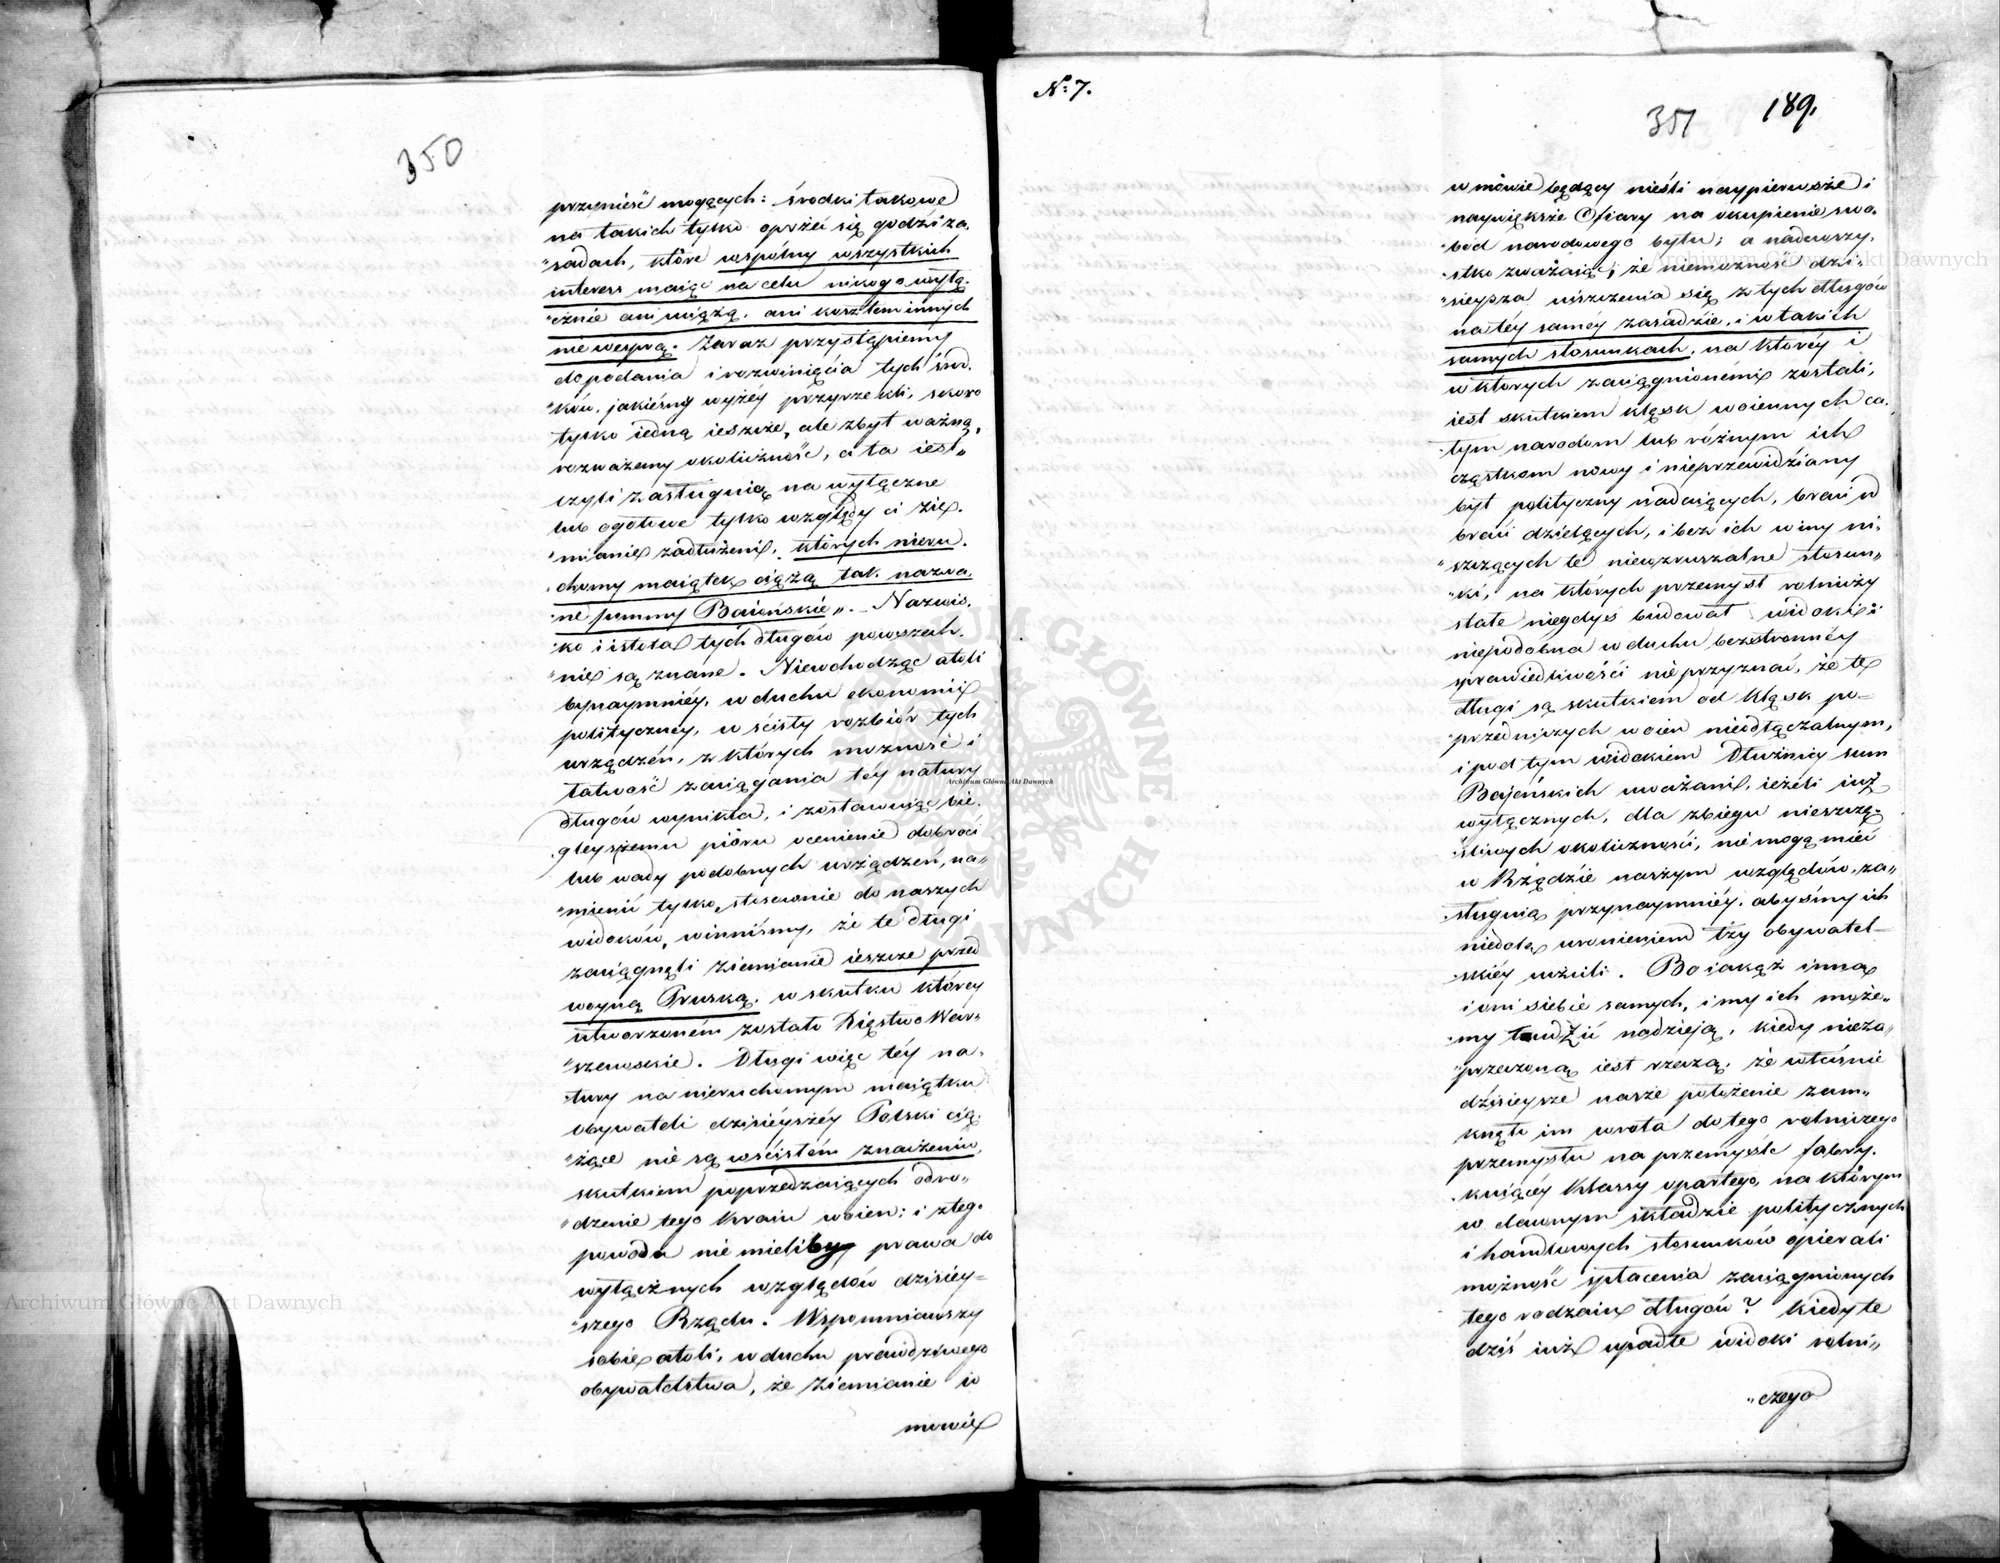 350
przynieść mogących: środki takowe
na takich tylko oprzéć się godzi za„
„sadach, które wspólny wszystkich
interess maiąc na celu nikogo wyłą„
„cznie ani wiążą, ani kosztem innych
nie wesprą. Zaraz przystąpiemy
do podania i rozwinięcia tych środ„
„ków, jakieśmy wyżéy przyrzekli, skoro
tylko iedną ieszcze, ale zbyt ważną,
rozważemy okoliczność, a ta iest„
czyli zasługuią na wyłączne
lub ogółowe tylko względy ci zie„
„mianie zadłużeni, których nieru„
„chomy maiątek ciążą tak nazwa„
„ne summy Baiońskie„. Nazwis„
„ko i istota tych długów powszech„
„nie są znane. Niewchodząc atoli
bynaymniéy, w duchu ekonomii
polityczney, w ścisły rozbiór tych
urządzeń, z których możność i
łatwość zaciągania téy natury
długów wynikła, i zostawuiąc bie„
„gleyszemu pióru ocenienie dobroci
lub wady podobnych urządzeń, na„
„mienić tylko, stosownie do naszych
widoków, winniśmy, że te długi
zaciągnęli Ziemianie ieszcze przed
woyną Pruską, w skutku którey
utworzoném zostało Xięstwo War„
„szawskie. Długi więc téy na„
„tury na nieruchomym maiątku
obywateli dzisiéyszéy Polski cią„
„żące nie są w ścisłém znaczeniu,
skutkiem poprzedzaiących odro„
„dzenie tego Kraiu woien; i z tego
powodu nie mieliby prawa do
wyłącznych względów dzisiey„
„szego Rządu. Wspomniawszy
sobie atoli, w duchu prawdziwego
obywatelstwa, że Ziemianie w
mowie
No 7.
351
189.
w mowie będący nieśli naypierwsze i
naywiększe Ofiary na okupienie swo„
„bod narodowego bytu; a nadewszy„
„stko zważaiąc, że niemożność dzi„
„sieysza uiszczenia się z tych długów
na téy saméy zasadzie, i w takich
samych stosunkach, na któréy i
w których zaciągnionemi zostali,
iest skutkiem klęsk woiennych ca„
„łym narodom lub różnym ich
cząstkom nowy i nieprzewidziany
byt polityczny nadaiących, braci od
braci dzielących, i bez ich winy ni„
„szczących te niewzruszalne stosun„
„ki, na których przemysł rolniczy
stałe niegdyś budował widoki:
niepodobna w duchu bezstronnéy
sprawiedliwości nie przyznać, że te
długi są skutkiem od klęsk po„
„przedniczych woien nieodłączalnym,
i pod tym widokiem Dłużnicy summ
Bajońskich uważani, ieżeli iuż
wyłącznych, dla zbiegu nieszczę„
„śliwych okoliczności, nie mogą mieć
w Rządzie naszym względów, za„
„sługuią przynaymniéy, abyśmy ich
niedolę uronieniem łzy obywatel„
„skiéy uczcili. Bo iakąż inną
i oni siebie samych, i my ich może„
„my łudzić nadzieją, kiedy nieza„
„przeczoną iest rzeczą, że właśnie
dzisieysze nasze położenie zam„
„knęło im wrota do tego rolniczego
przemysłu na przemyśle fabry„
„kuiącéy Klassy opartego, na którym
w dawnym składzie politycznych
i handlowych stosunków opierali
możność spłacenia zaciągnionych
tego rodzaiu długów? Kiedy te
dziś iuż upadłe widoki rolni„
„czego